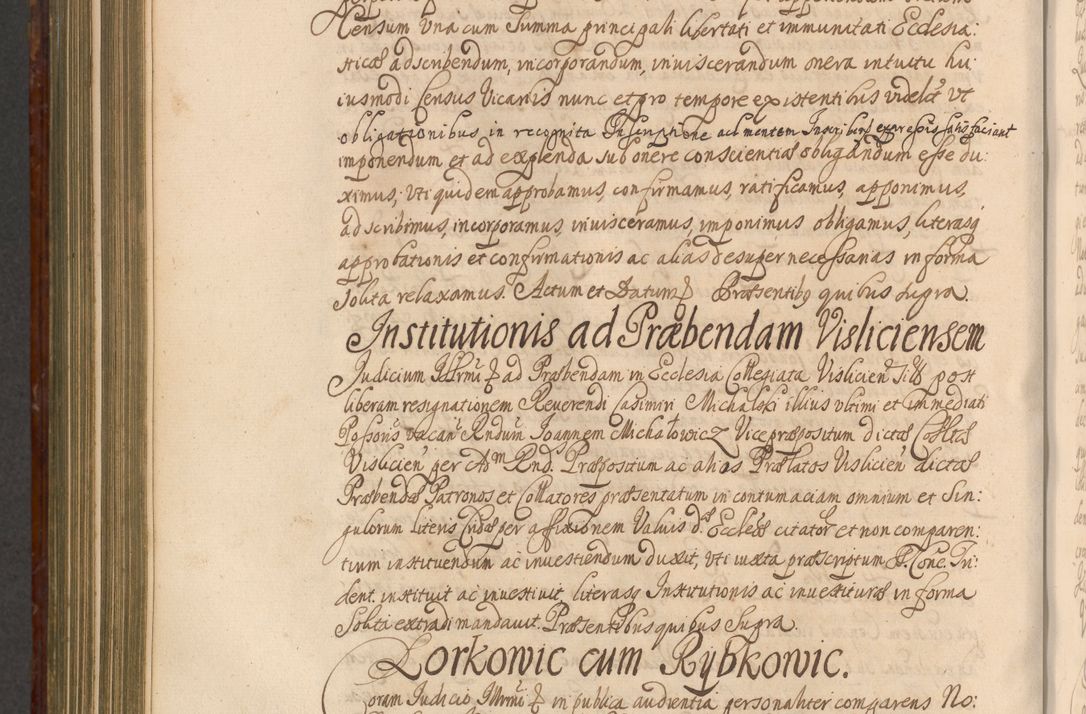 Censum Una cum Summa principali libertati et immunitati Ecclesia:
sticæ adscribendum, incorporandum, inviscerandum onera intuitu hu:
iusmodi Census Vicariis nunc et pro tempore existentibus videlct Ut
obligationibus in recognita Inscriptione ad mentem Inscribens expressis satisfaciant
imponendum et ad explenda sub onere conscientiæ obligandum esse du:
ximus; Uti quidem approbamus, confirmamus, ratificamus, apponimus,
adscribimus, incorporamus, invisceramus, imponimus obligamus, literasq
approbationis et confirmationis ac alias desuper necessarias in forma
solita relaxamus. Actum et Datum Præsentibq quibus supra.
Institutionis ad Præbendam Visliciensem
Judicium Illrmi ad Præbendam in Ecclesia Collegiata Vislicien Titt post
liberam resignationem Reverendi Casimiri Michalski illius ultimi et immediati
Possoris vacan Rndum Joannem Michałowicz Vicepræpositum dictæ Collтæ
Vislicien per Adm Rnd. Præpositum ac alios Prælatos Vislicien dictæ
Præbendæ Patronos et Collatores præsentatum in contumaciam omnium et Sin:
gulorum literis Cridæ per affixionem Valvis dæ Ecclæ citator et non comparen:
tium instituendum ac investiendum duxit, Uti iuxta præscriptum S. Conc. Tri:
dent. instituit ac investivit, literasq Institutionis ac investituræ in forma
Solita extradi mandavit. Præsentibus quibus Supra.
Lorkowic cum Rybkowic.
Coram Judicio Illrmi in publica audientia personaliter comparens No: